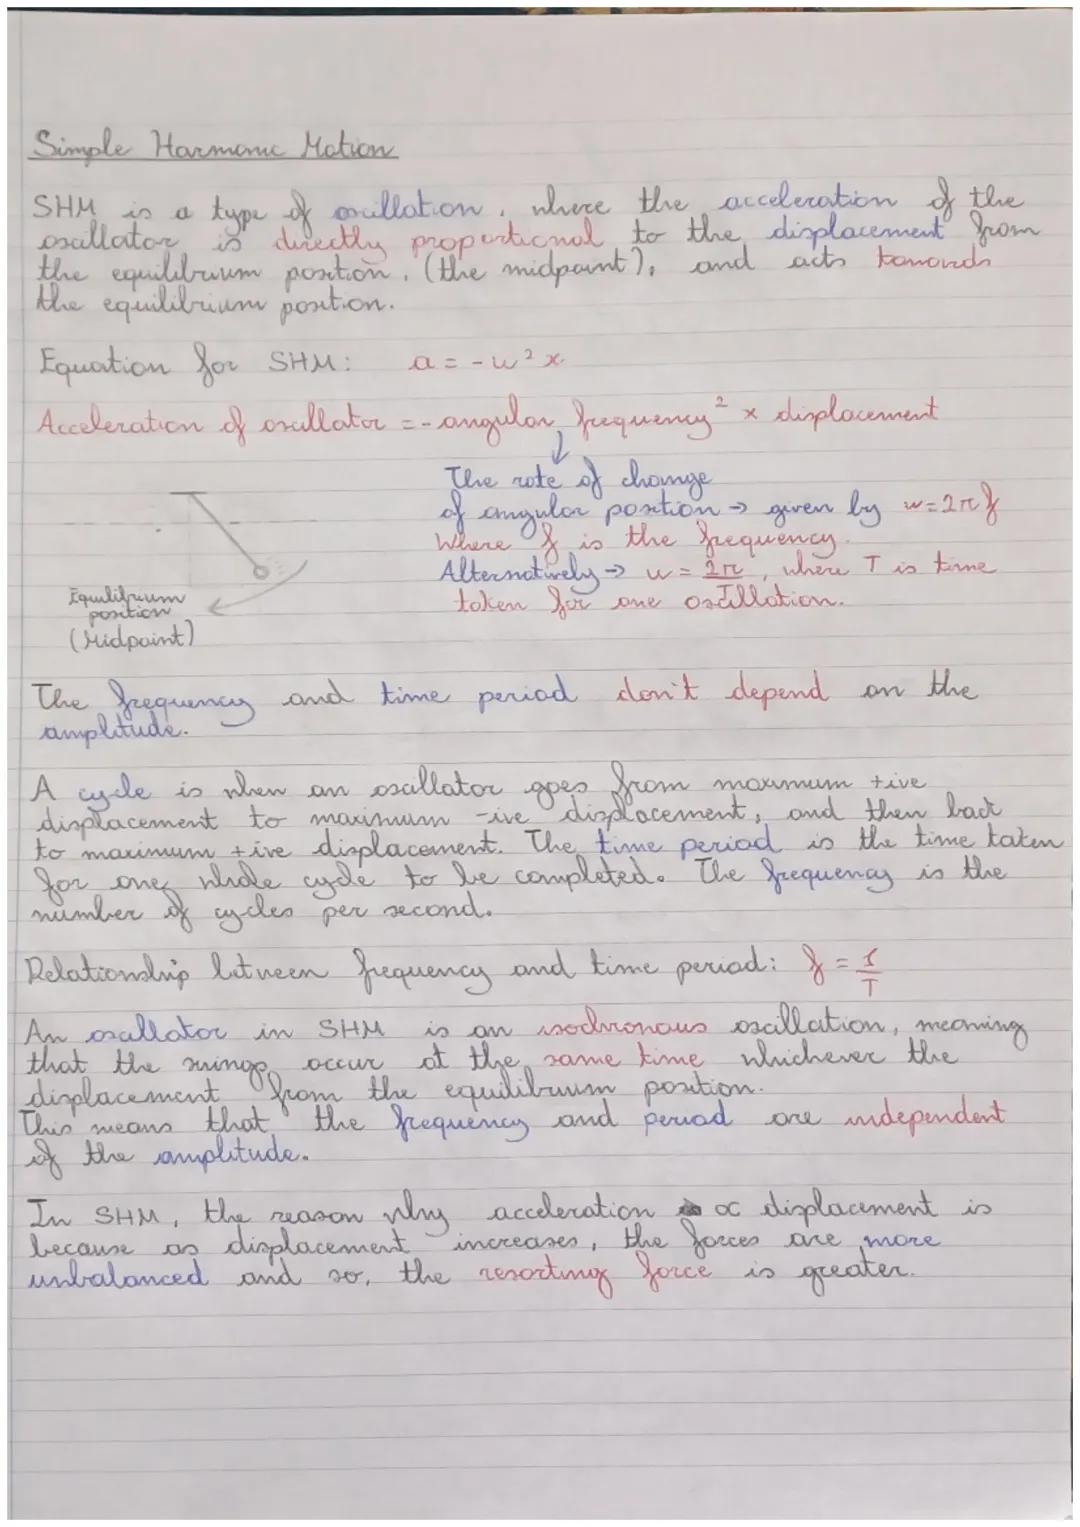 Simple Harmonic Motion
SHM is a type of oscillation, where the acceleration of the
oscillator is directly proportional to the displacement from
the equilibrium position, (the midpoint), and acts towards
the equilibrium position.
Equation for SHM: a = -w²x
Acceleration of oscillator = - angular frequency² × displacement
The rate of change
of angular position → given by w=2πf
Where f is the frequency.
Alternatively → w = 2π/T, where T is time
taken for one oscillation.
Equilibrium
position
(Midpoint)
The frequency and time period don't depend on the
amplitude.
A cycle is when an oscillator goes from maximum +ive
displacement to maximum -ive displacement, and then back
to maximum +ive displacement. The time period is the time taken
for one whole cycle to be completed. The frequency is the
number of cycles per second.
Relationship between frequency and time period: f = 1/T
An oscillator in SHM is an isochronous oscillation, meaning
that the swings occur at the same time whichever the
displacement from the equilibrium position.
This means that the frequency and period are independent
of the amplitude.
In SHM, the reason why acceleration ∝ displacement is
because as displacement increases, the forces are more
unbalanced and so, the resorting force is greater.